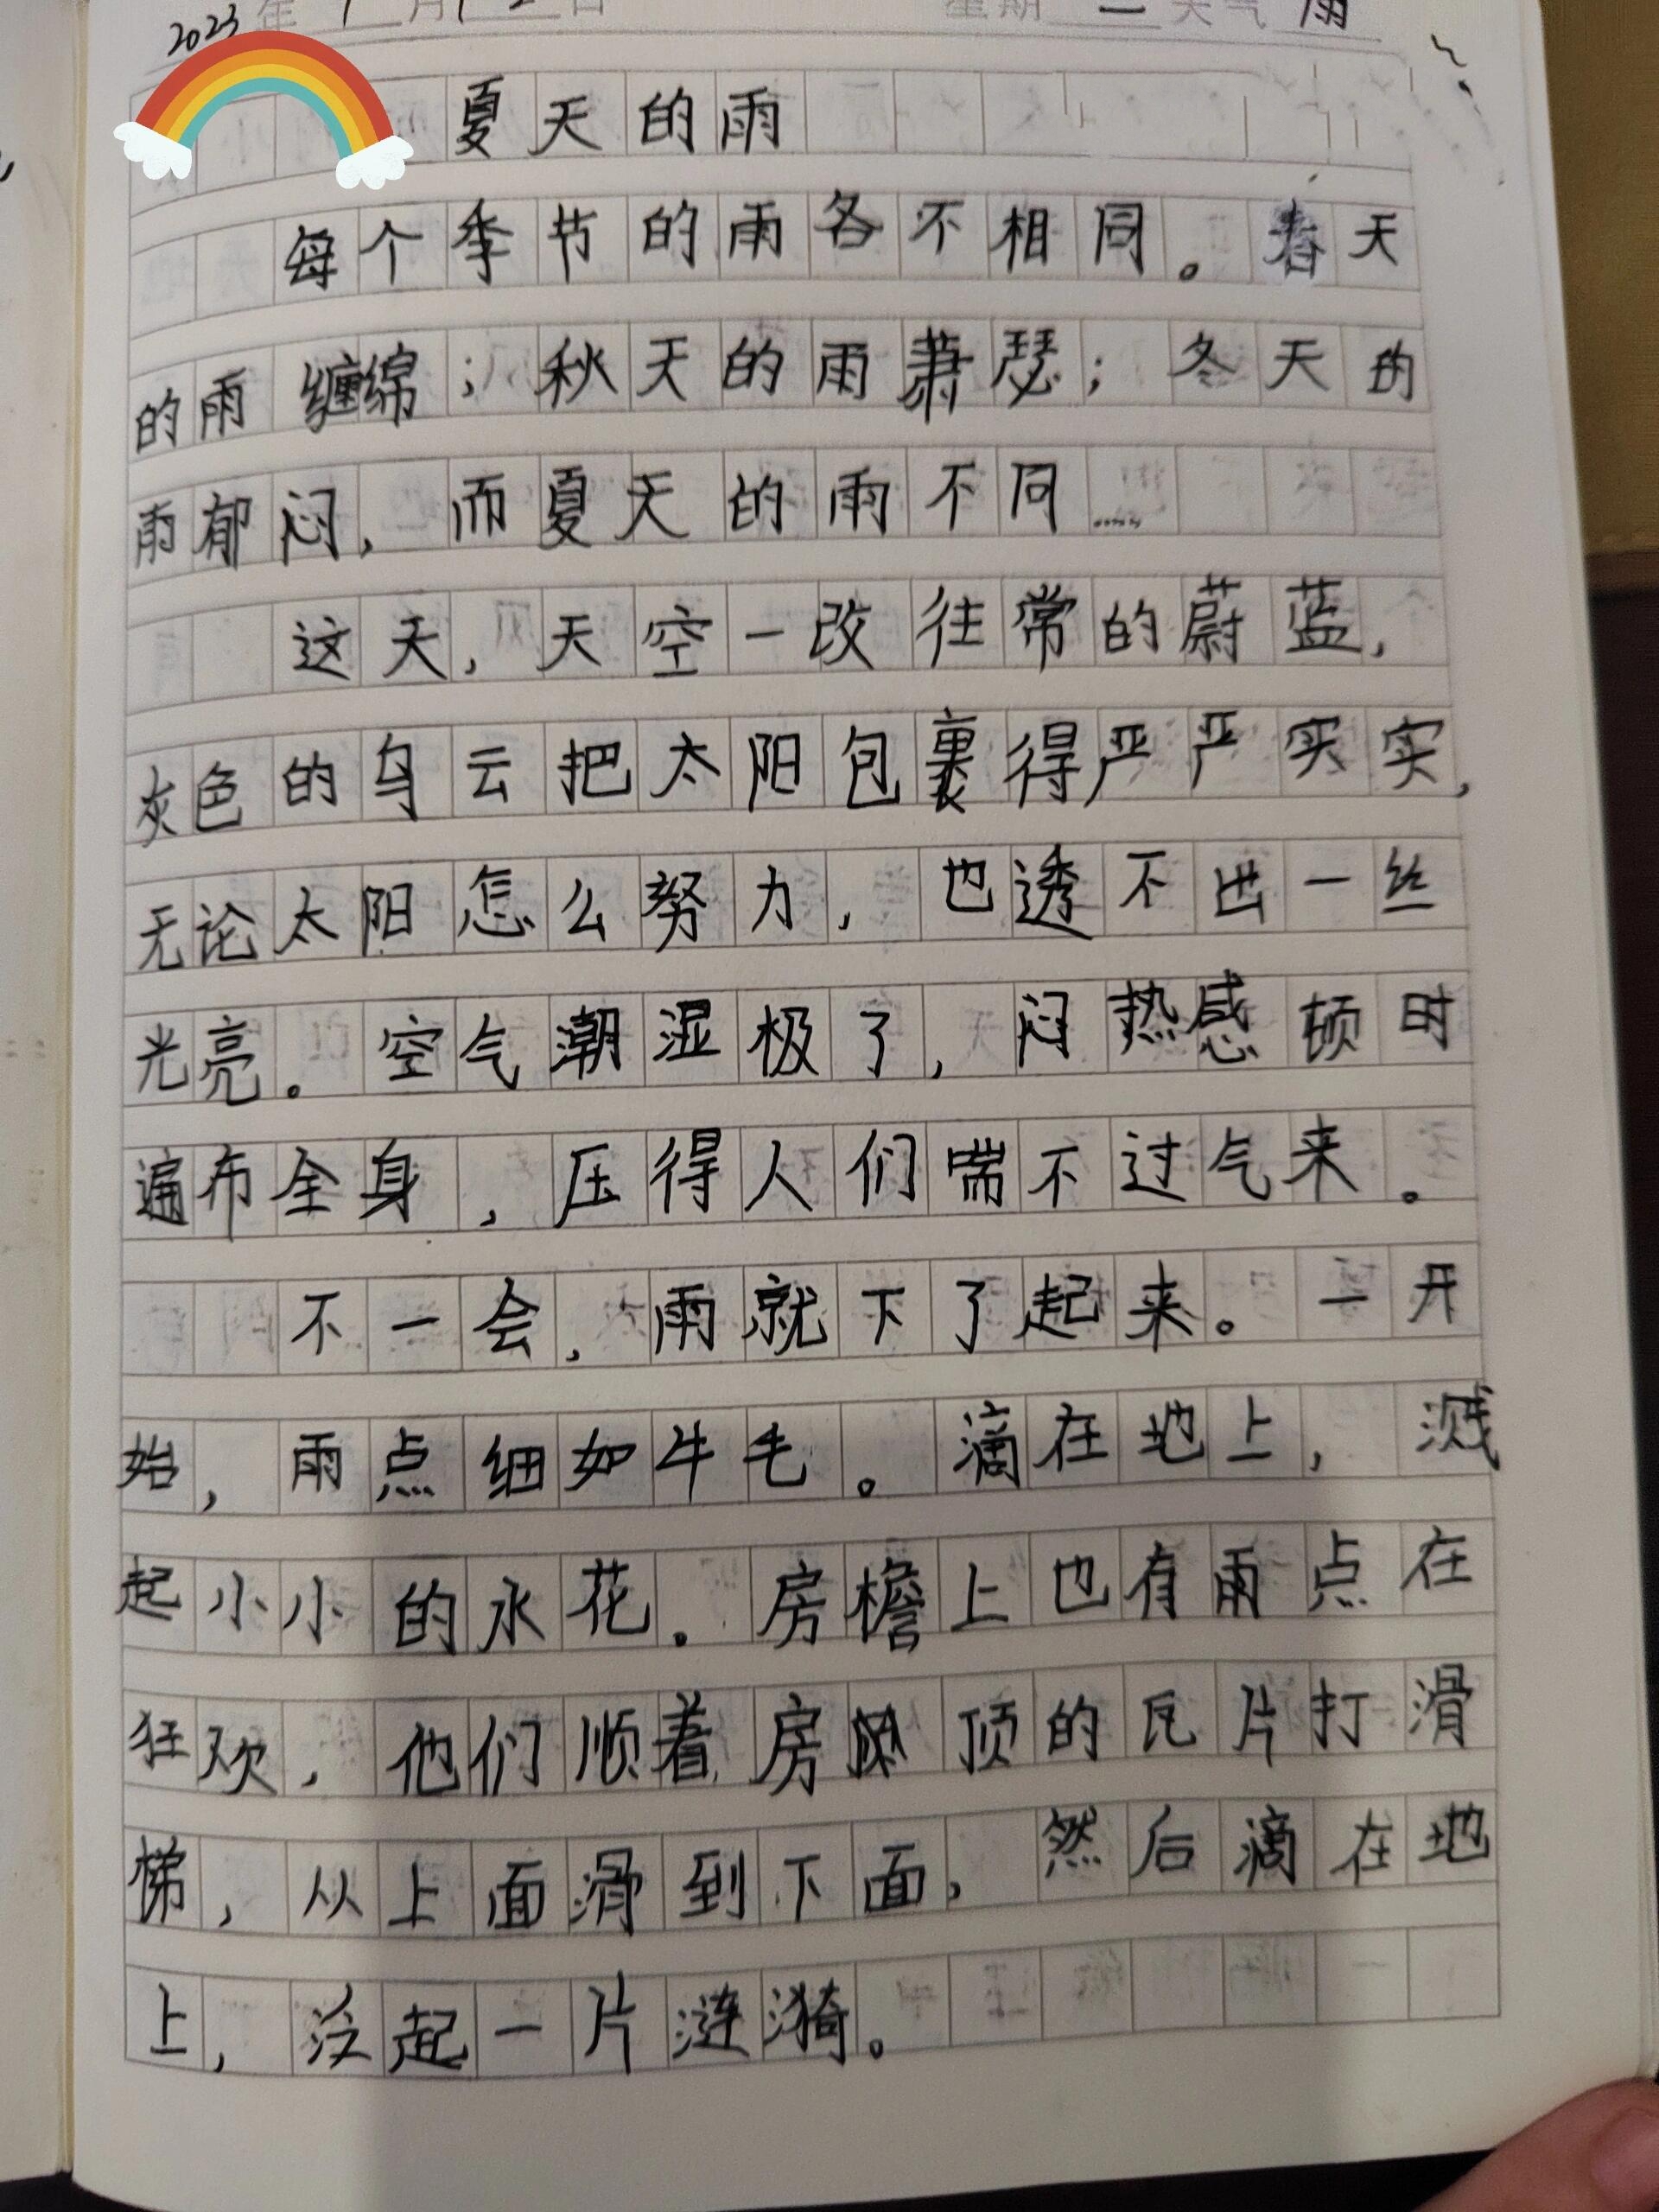 2023年 月 日 星期二天气雨
夏天的雨
每个季节的雨各不相同。春天
的雨缠绵；秋天的雨萧瑟；冬天的
雨郁闷，而夏天的雨不同……
这天，天空一改往常的蔚蓝，
灰色的乌云把太阳包裹得严严实实，
无论太阳怎么努力，也透不出一丝
光亮。空气潮湿极了，闷热感顿时
遍布全身，压得人们喘不过气来。
不一会，雨就下了起来。一开
始，雨点细如牛毛。滴在地上，溅
起小小的水花。房檐上也有雨点在
狂欢，他们顺着房顶的瓦片打滑
梯，从上面滑到下面，然后滴在地
上，泛起一片涟漪。